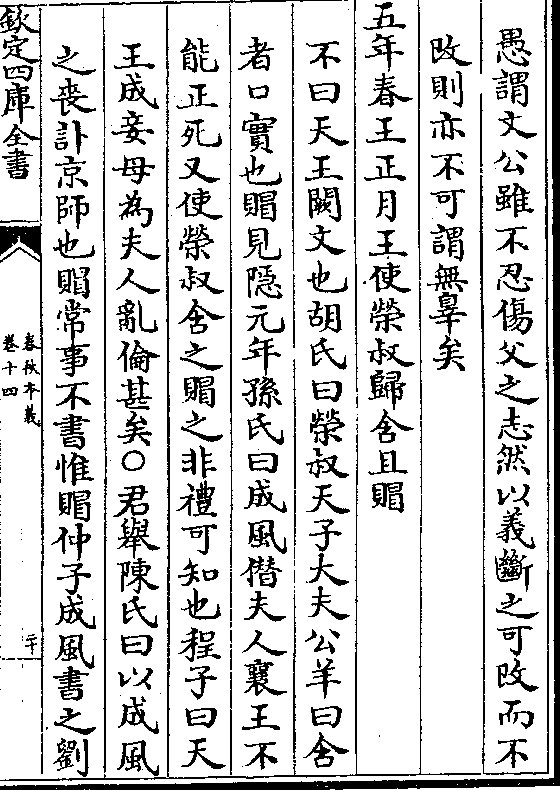 愚謂文公雖不忍傷父之志然以義斷之可改而不
改則亦不可謂無辠矣
五年春王正月王使榮叔歸含且賵
不曰天王闕文也胡氏曰榮叔天子大夫公羊曰含
者口實也賵見隠元年孫氏曰成風僣夫人襄王不
能正死又使榮叔含之賵之非禮可知也程子曰天
王成妾母為夫人亂倫甚矣○君舉陳氏曰以成風
之喪訃京師也賵常事不書惟賵仲子成風書之劉
欽定四庫全書
春秋本義
卷十四
二十